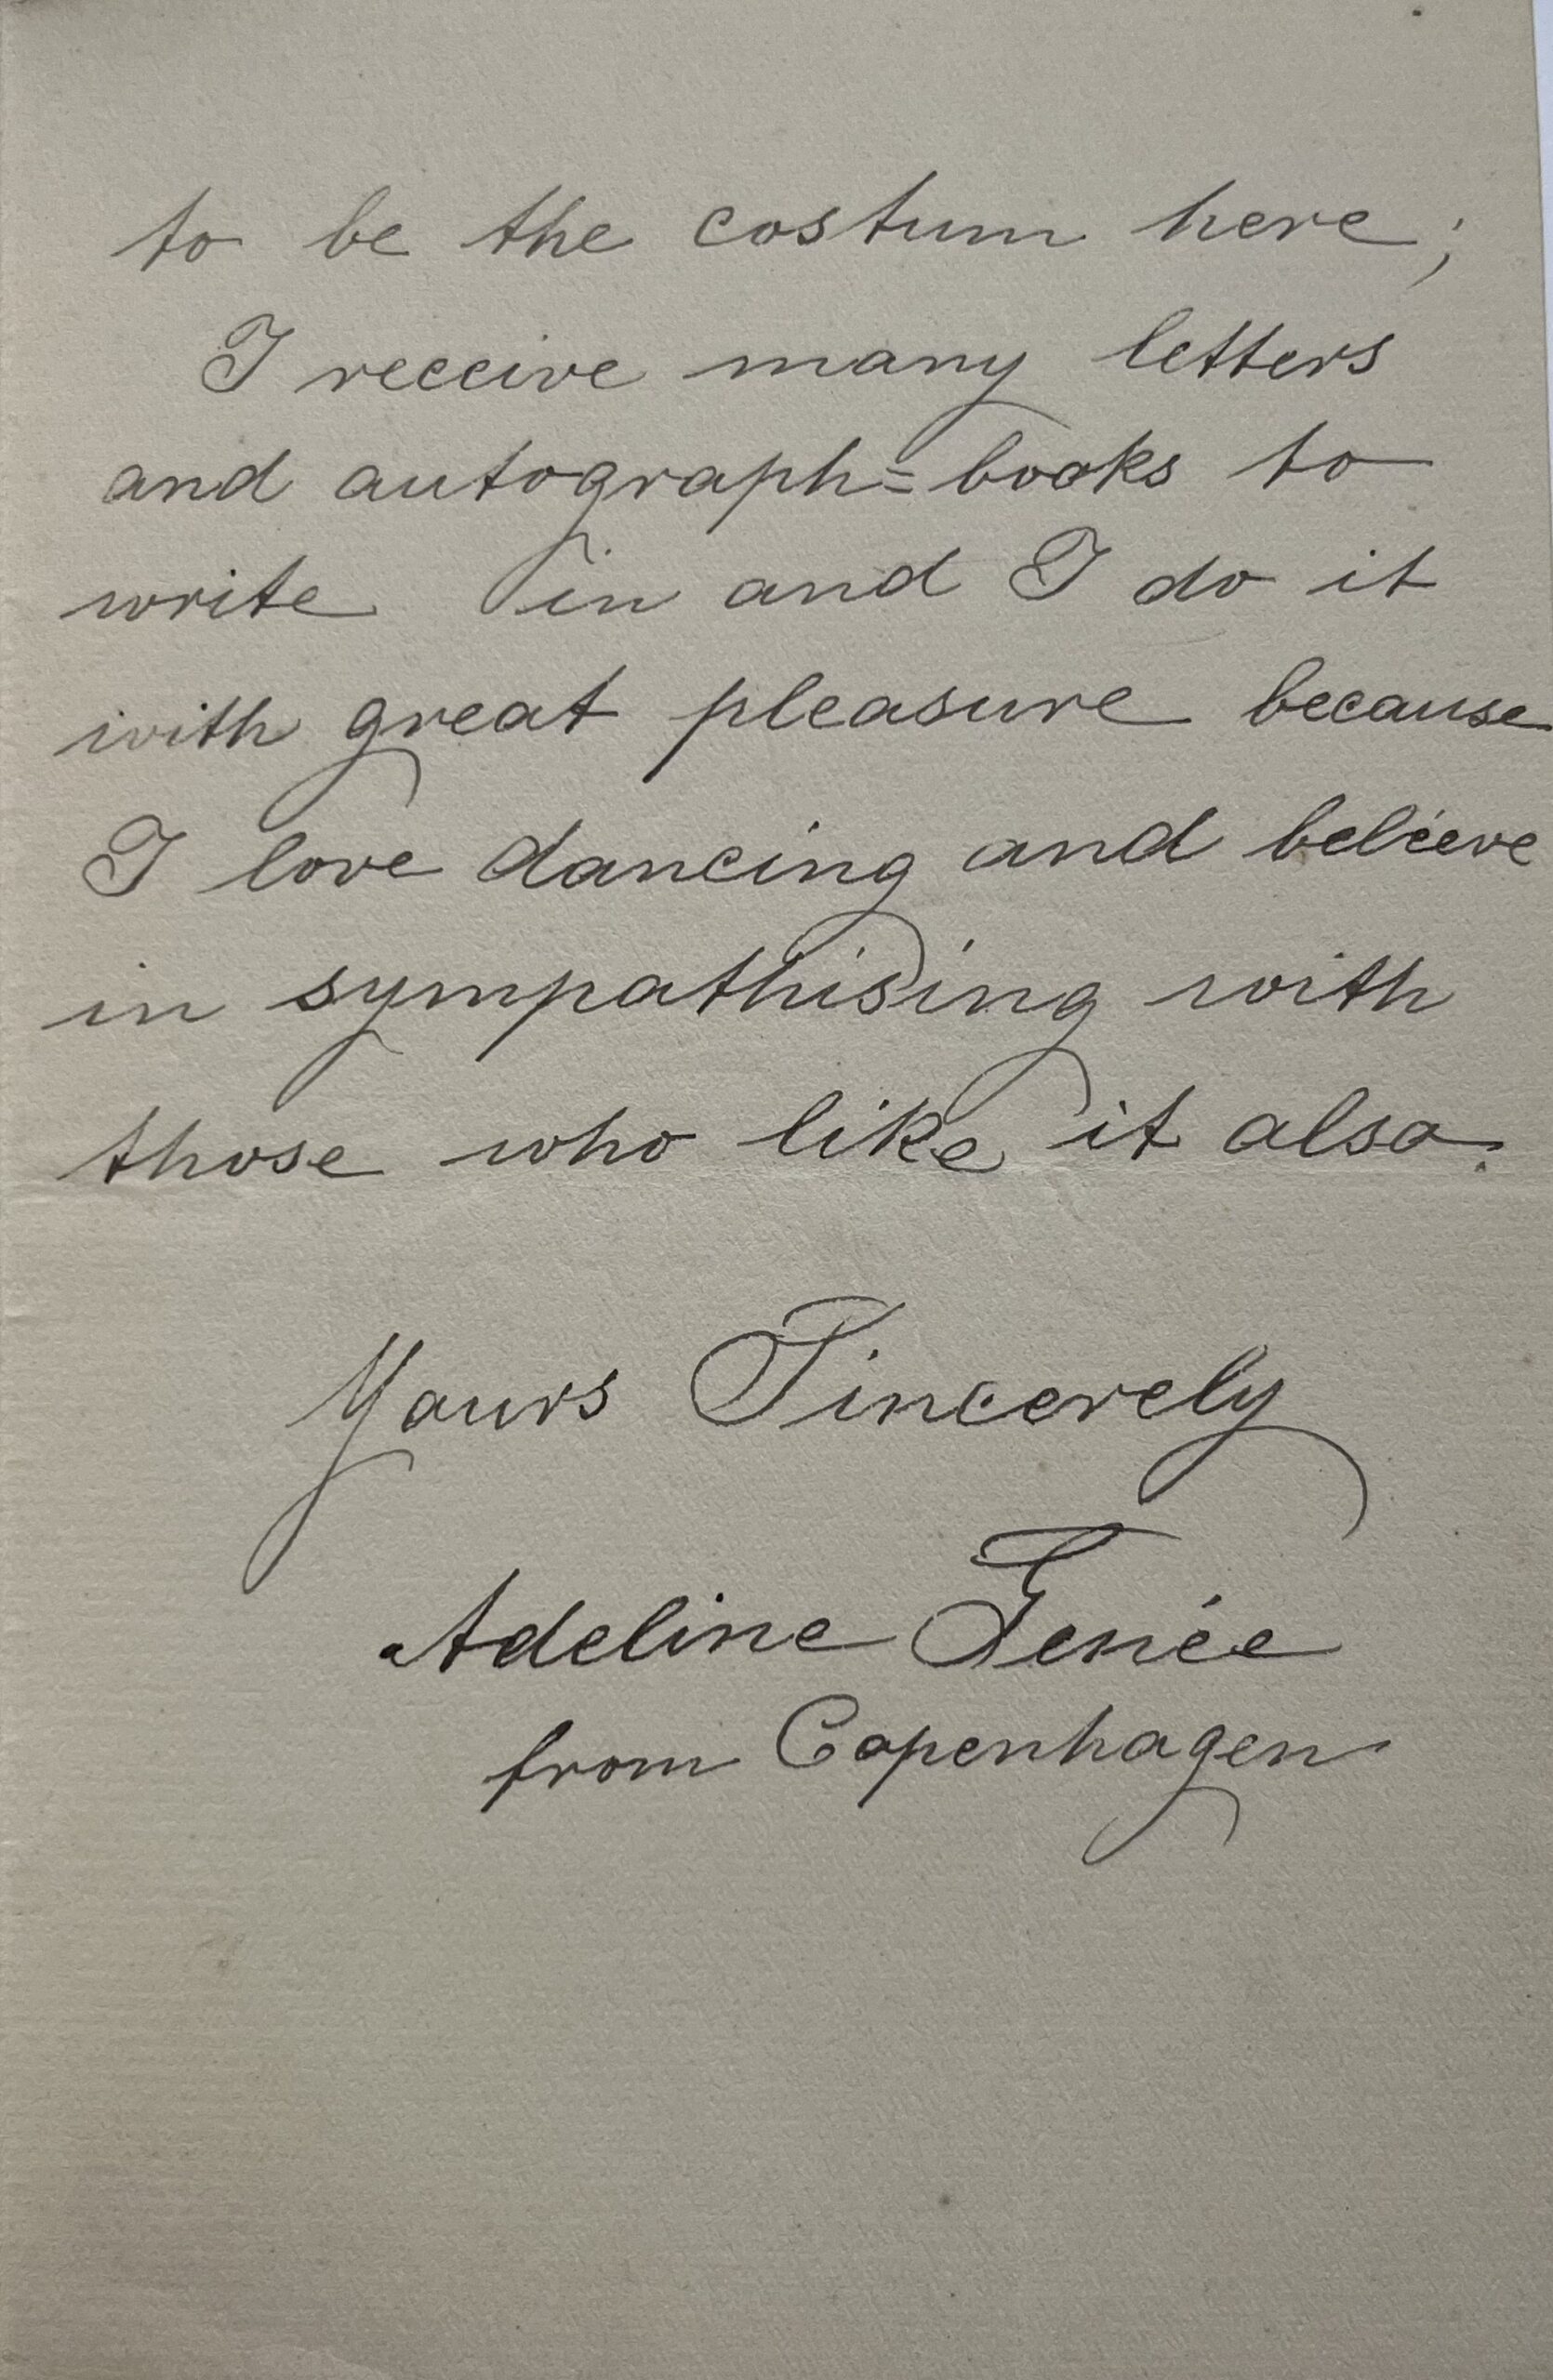 to be the costum here;
I receive many letters
and autograph=books to
write in and I do it
with great pleasure because
I love dancing and believe
in sympathising with
those who like it also.
Yours Sincerely
Adeline Genée
from Copenhagen